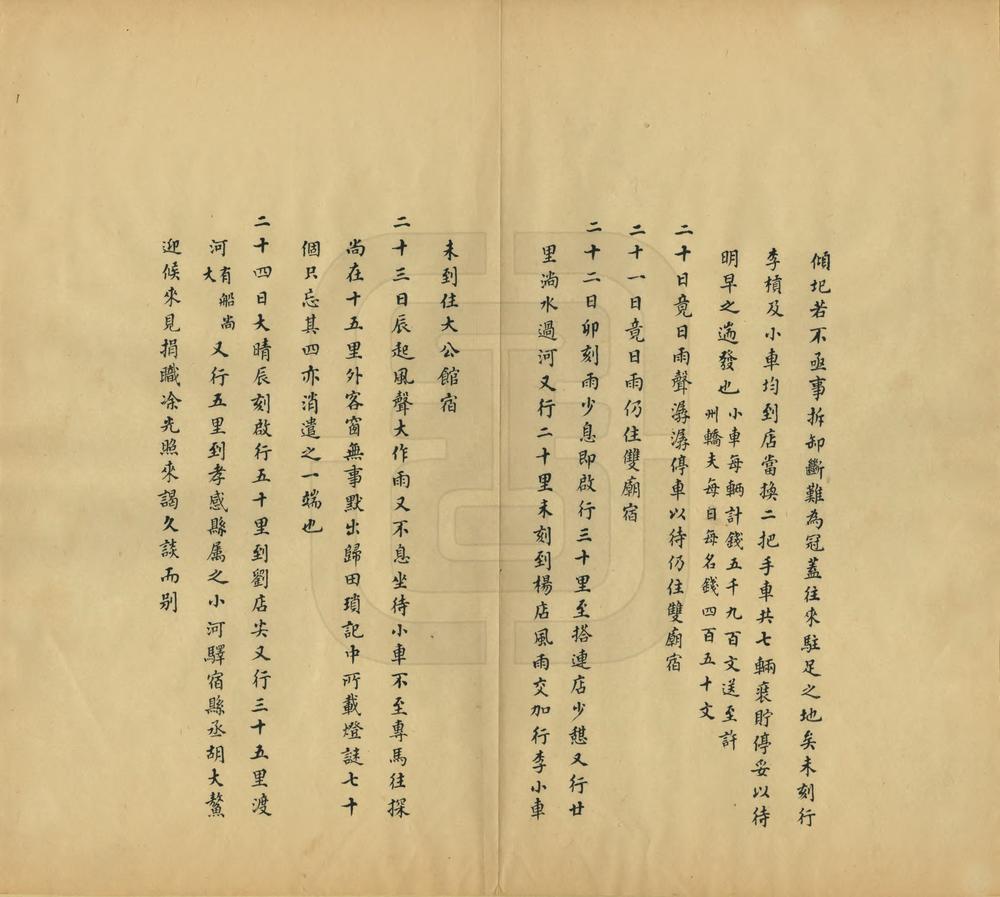 傾圮若不亟事拆卸斷難為冠蓋往來駐足之地矣未刻行
李槓及小車均到店當換二把手車共七輛裝貯停妥以待
明早之遄發也小車每輛計錢五千九百文送至許州轎夫每日每名錢四百五十文
二十日竟日雨聲潺潺停車以待仍住雙廟宿
二十一日竟日雨仍住雙廟宿
二十二日卯刻雨少息即啟行三十里至搭連店少憇又行廿
里淌水過河又行二十里未刻到楊店風雨交加行李小車
未到住大公館宿
二十三日辰起風聲大作雨又不息坐待小車不至專馬往探
尚在十五里外客窗無事默出歸田瑣記中所載燈謎七十
個只忘其四亦消遣之一端也
二十四日大晴辰刻啟行五十里到劉店尖又行三十五里渡
河有船尚大又行五里到孝感縣屬之小河驛宿縣丞胡大鰲
迎候來見捐職涂光照來謁久談而別